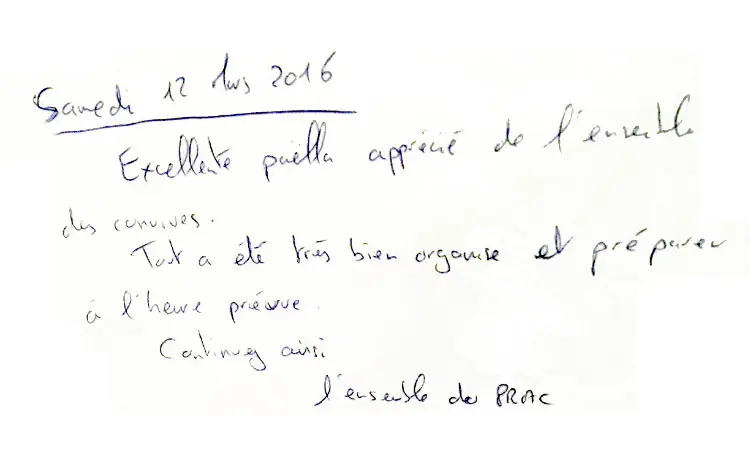 Samedi 12 Mars 2016
Excellente paëlla apprécié de l'ensemble
des convives.
Tout a été très bien organisé et préparer
à l'heure prévue.
Continuez ainsi
l'ensemble du PRAC